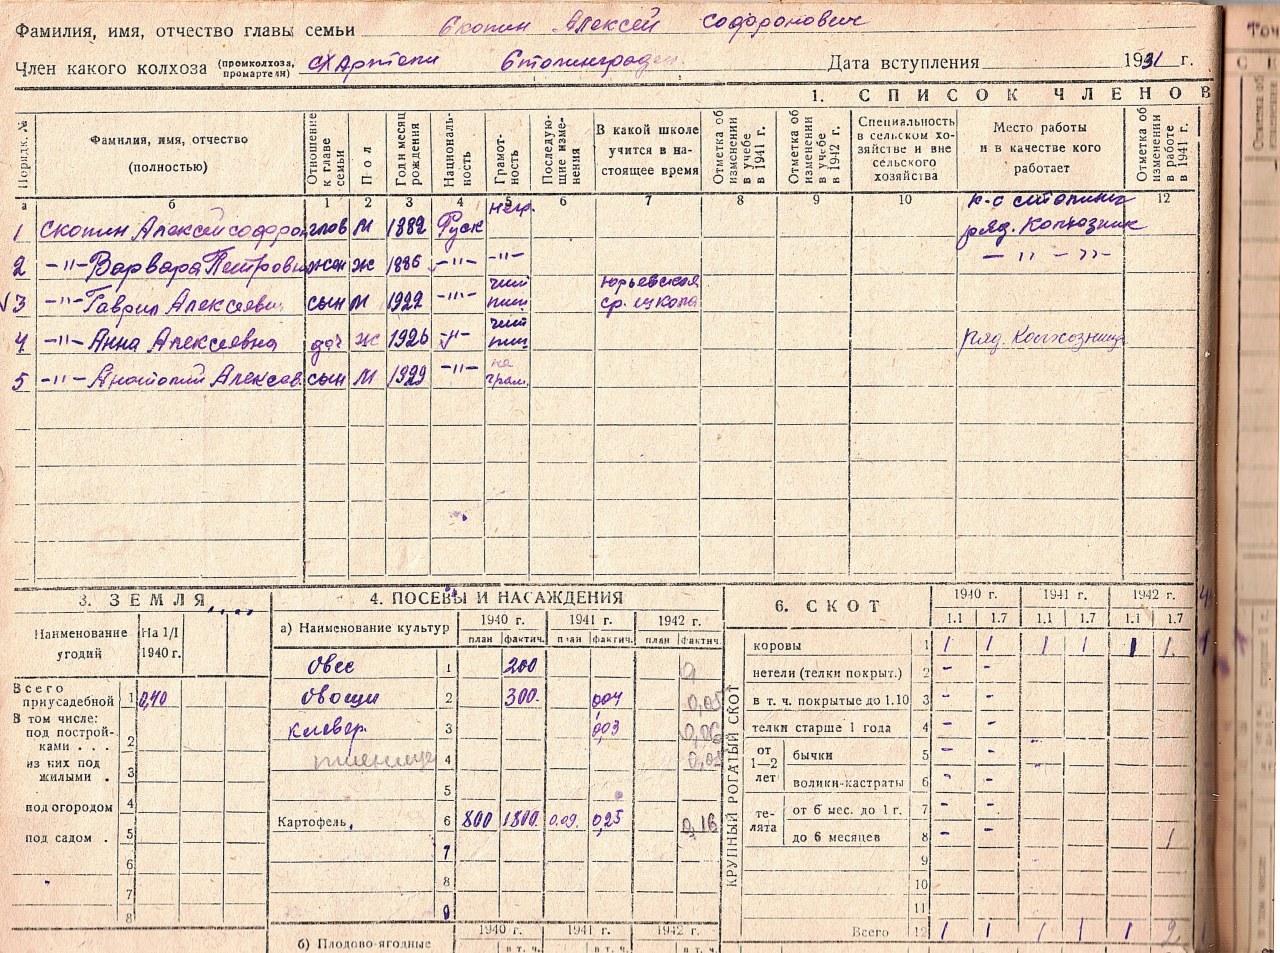 Фамилия, имя, отчество главы семьи Скопин Алексей Софронович
Член какого колхоза (промколхоза, промартели) сх Артели Дата вступления 1931 г.
1. СПИСОК ЧЛЕНОВ
Порядк. №
Фамилия, имя, отчество (полностью)
Отношение к главе семьи
Пол
Год и месяц рождения
Националь-ность
Грамот-ность
Последую-щие изме-нения
В какой школе учится в на-стоящее время
Отметка об изменении в учебе в 1941 г.
Отметка об изменении в учебе в 1942 г.
Специальность в сельском хо-зяйстве и вне сельского хозяйства
Место работы и в качестве кого работает
Отметка об изменении в работе в 1941 г.
а б 1 2 3 4 5 6 7 8 9 10 12
1 Скопин Алексей софрон глов м 1882 Руск негр. ряд. Колхозник
2 -"- Варвара Петровн жен ж 1886 -"- -"- - " - "-
3 -"- Гаврил Алексеевич сын м 1922 -"- чит пиш Юрьевская ср. школа
4 -"- Анна Алексеевна доч ж 1926 -"- чит пиш ряд. Колхозница
5 -"- Анатолий Алексеев. сын м 1929 -"- на грам.
3. ЗЕМЛЯ
Наименование угодий На 1/I 1940 г.
Всего приусадебной 1 0,40
В том числе:
под построй-ками . . . 2
из них под жилыми . 3
под огородом 4
под садом . 5
6
7
8
4. ПОСЕВЫ И НАСАЖДЕНИЯ
а) Наименование культур 1940 г. 1941 г. 1942 г.
план фактич. план фактич. план фактич.
Овес 1 200
Овощи 2 300. 0,04 0,05
клевер. 3 0,03 0,06
пшеница 4 0,05
5
Картофель. 6 800 1800 0.09. 0,25 0,16
7
8
9
б) Плодово-ягодные 1940 г. 1941 г. 1942 г.
в т. ч. в т. ч. в т. ч.
6. СКОТ
1940 г. 1941 г. 1942 г.
1.1 1.7 1.1 1.7 1.1 1.7
КРУПНЫЙ РОГАТЫЙ СКОТ
коровы 1 1 1 1 1 1 1.
нетели (телки покрыт.) 2 - -
в т. ч. покрытые до 1.10 3 - -
телки старше 1 года 4 - -
от 1—2 лет
бычки 5 - -
волики-кастраты 6 - -
те-лята
от 6 мес. до 1 г. 7 - -
до 6 месяцев 8 - - 1
9
10
11
Всего 12 1 1 1 1 1 2.